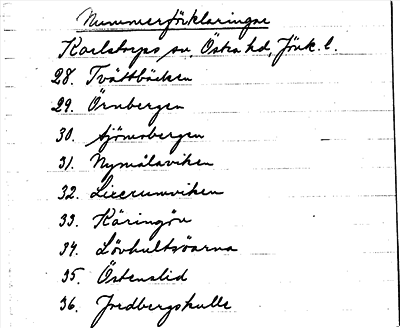 Nummerförklaringar
Karlstorps sn, Östra hd, Jönk. l.
28. Tvättbäcken
29. Örnbergen
30. Sjömobergen
31. Nymålaviken
32. Liverumviken
33. Käringön
34. Lövhultsöarna
35. Östenslid
36. Fredbergskulle